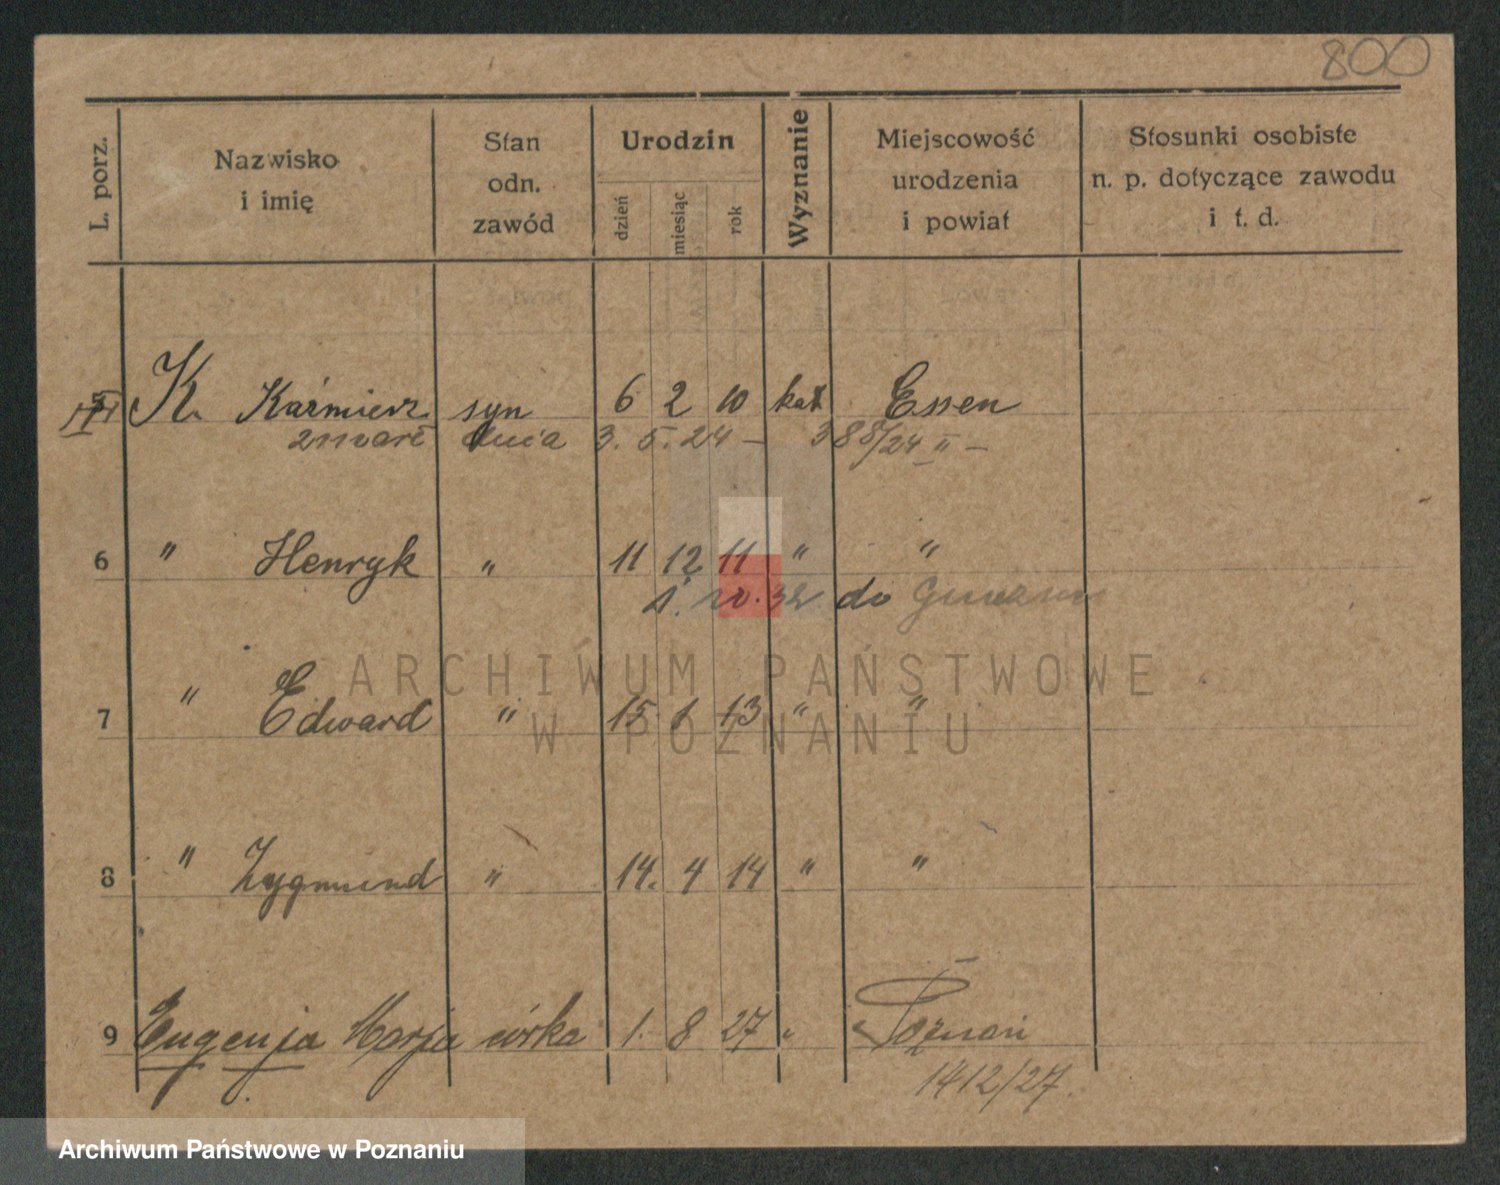 800
L. porz.
Nazwisko
i imię
Stan
odn.
zawód
Urodzin
dzień
miesiąc
rok
Wyznanie
Miejscowość
urodzenia
i powiat
Stosunki osobiste
n. p. dotyczące zawodu
i t. d.
K. Kaźmierz syn 6 2 10 kat Essen
zmarł dnia 3. 5. 24 — 388/24 II —
6 " Henryk " 11 12 11 " "
1. 10. 32 do
7 " Edward " 15 1 13 " "
8 " Zygmund " 14. 4 14 " "
9 Eugenja Marja córka 1. 8 27 " Poznań
1412/27.
ARCHIWUM PAŃSTWOWE
W POZNANIU
Archiwum Państwowe w Poznaniu